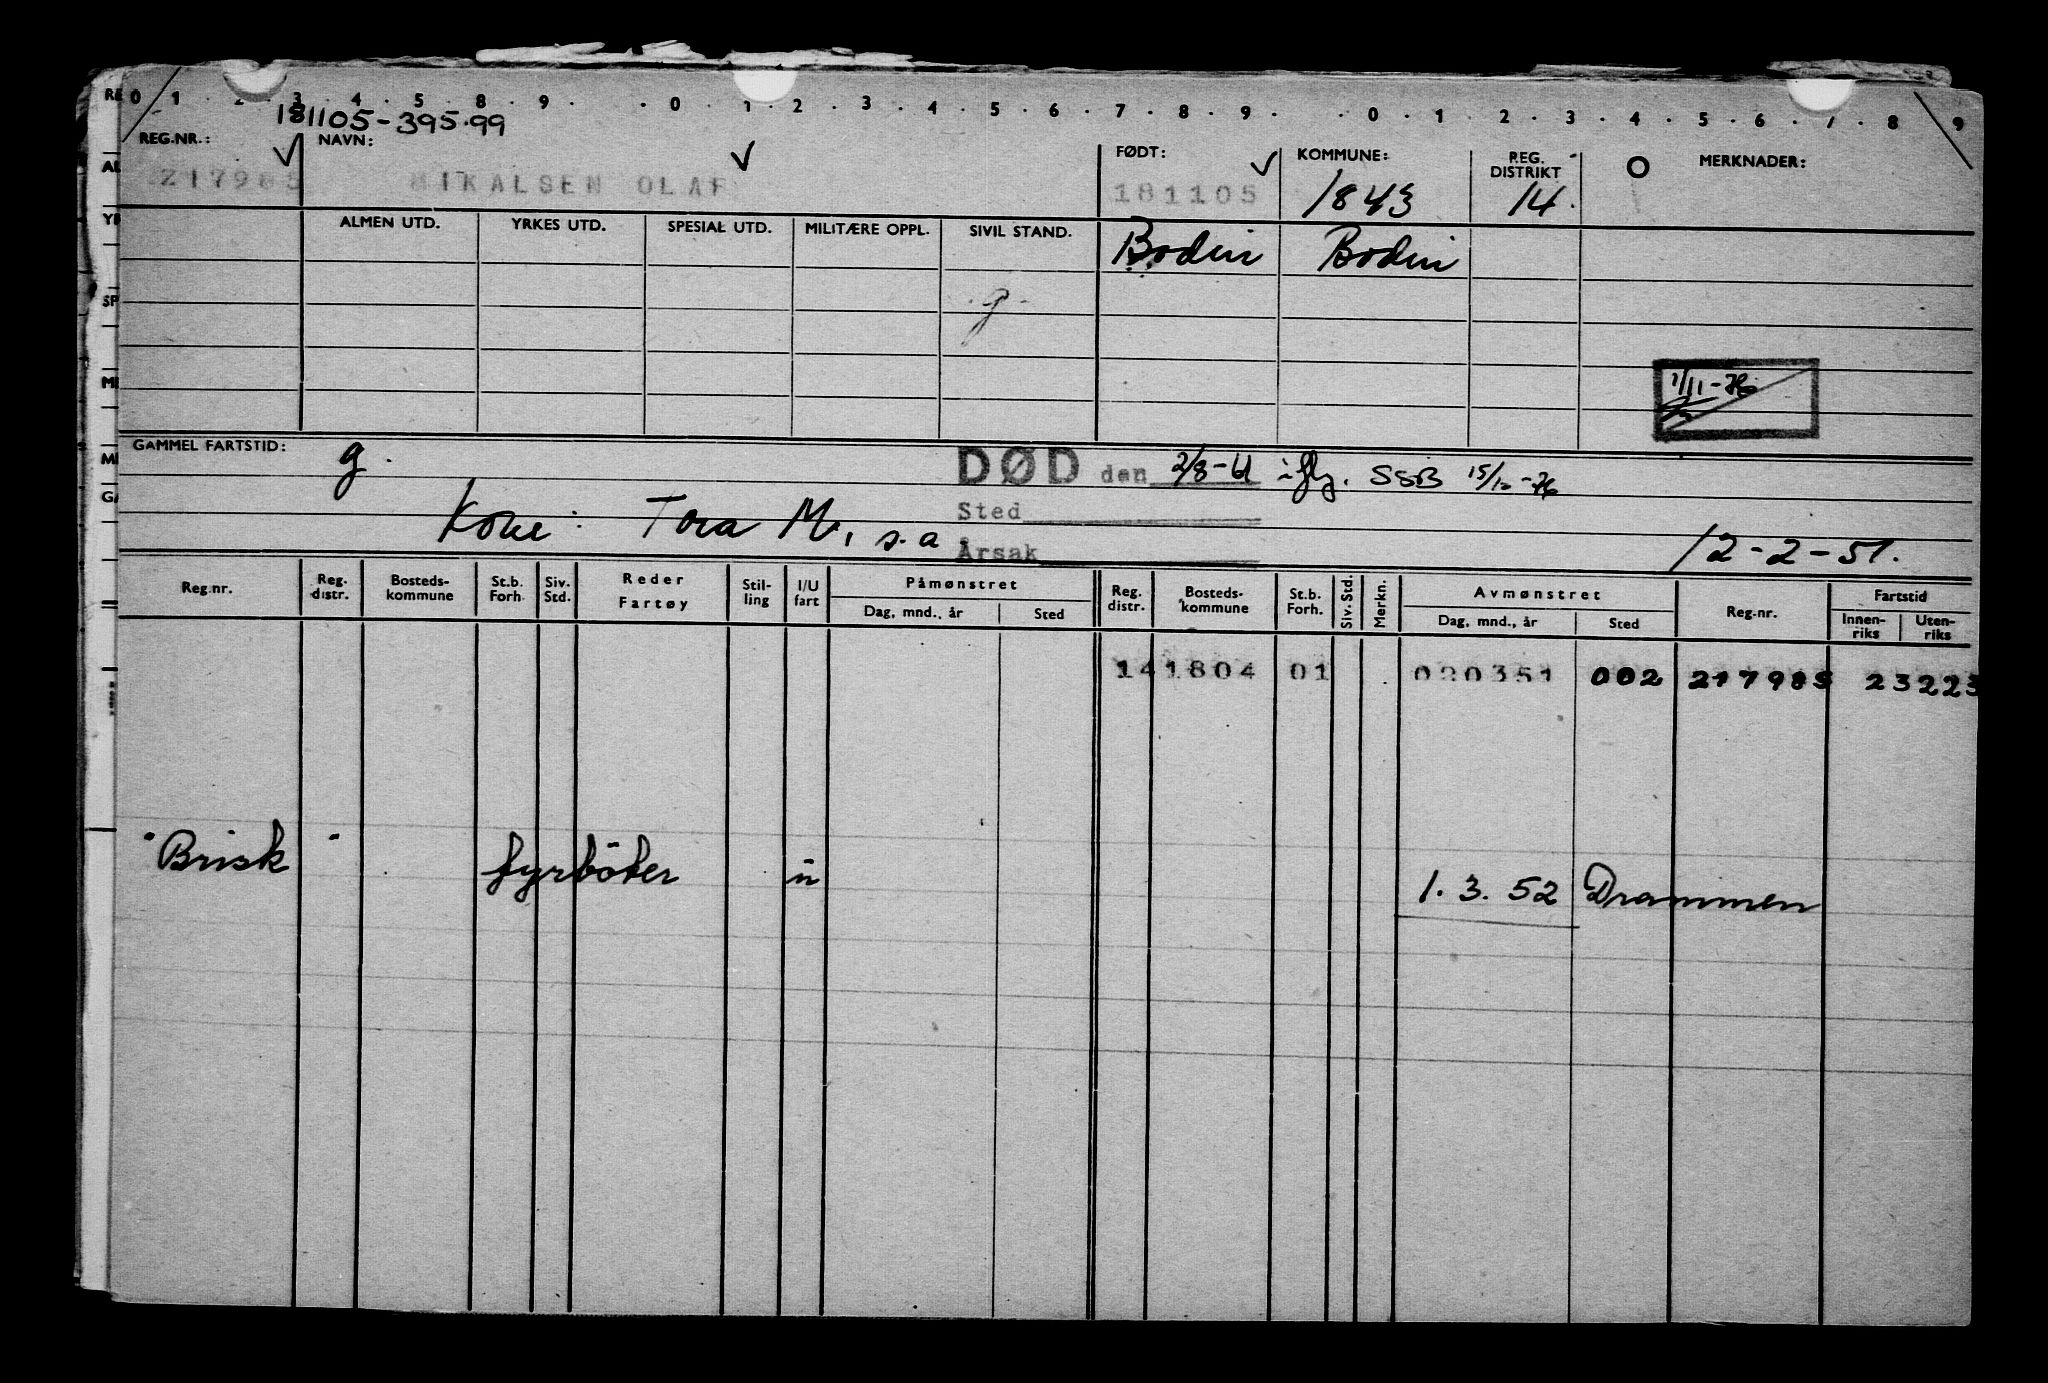 0 1 . 2 . 3 . 4 . 5 . 8 . 9 . . 0 . 1 . 2 . 3 . 4 . 5 . 6 . 7 . 8 . 9 . . 0 . 1 . 2 . 3 . 4 . 5 . 6 . 7 . 8 . 9
181105-395.99
REG.NR.: NAVN: FØDT: KOMMUNE: REG. DISTRIKT MERKNADER:
217985 MIKALSEN OLAF 181105 1843 14.
ALMEN UTD. YRKES UTD. SPESIAL UTD. MILITÆRE OPPL. SIVIL STAND. Bodin Bodin
g
1/11-76
GAMMEL FARTSTID: g. DØD den 2/8-61 iflg. SSB 15/12-76
Sted
Kone: Tora M, s.a.
Årsak 12-2-51.
Reg.nr. Reg. distr. Bosteds-kommune St.b. Forh. Siv. Std. Reder Fartøy Stil-ling I/U fart Påmønstret Reg. distr. Bosteds-kommune St.b. Forh. Siv. Std. Merkn. Avmønstret Reg.nr. Fartstid
Dag, mnd., år Sted Dag, mnd., år Sted Innen-riks Uten-riks
14 1804 01 020351 002 217985 23 223
"Brisk" fyrbøter u 1.3.52 Drammen